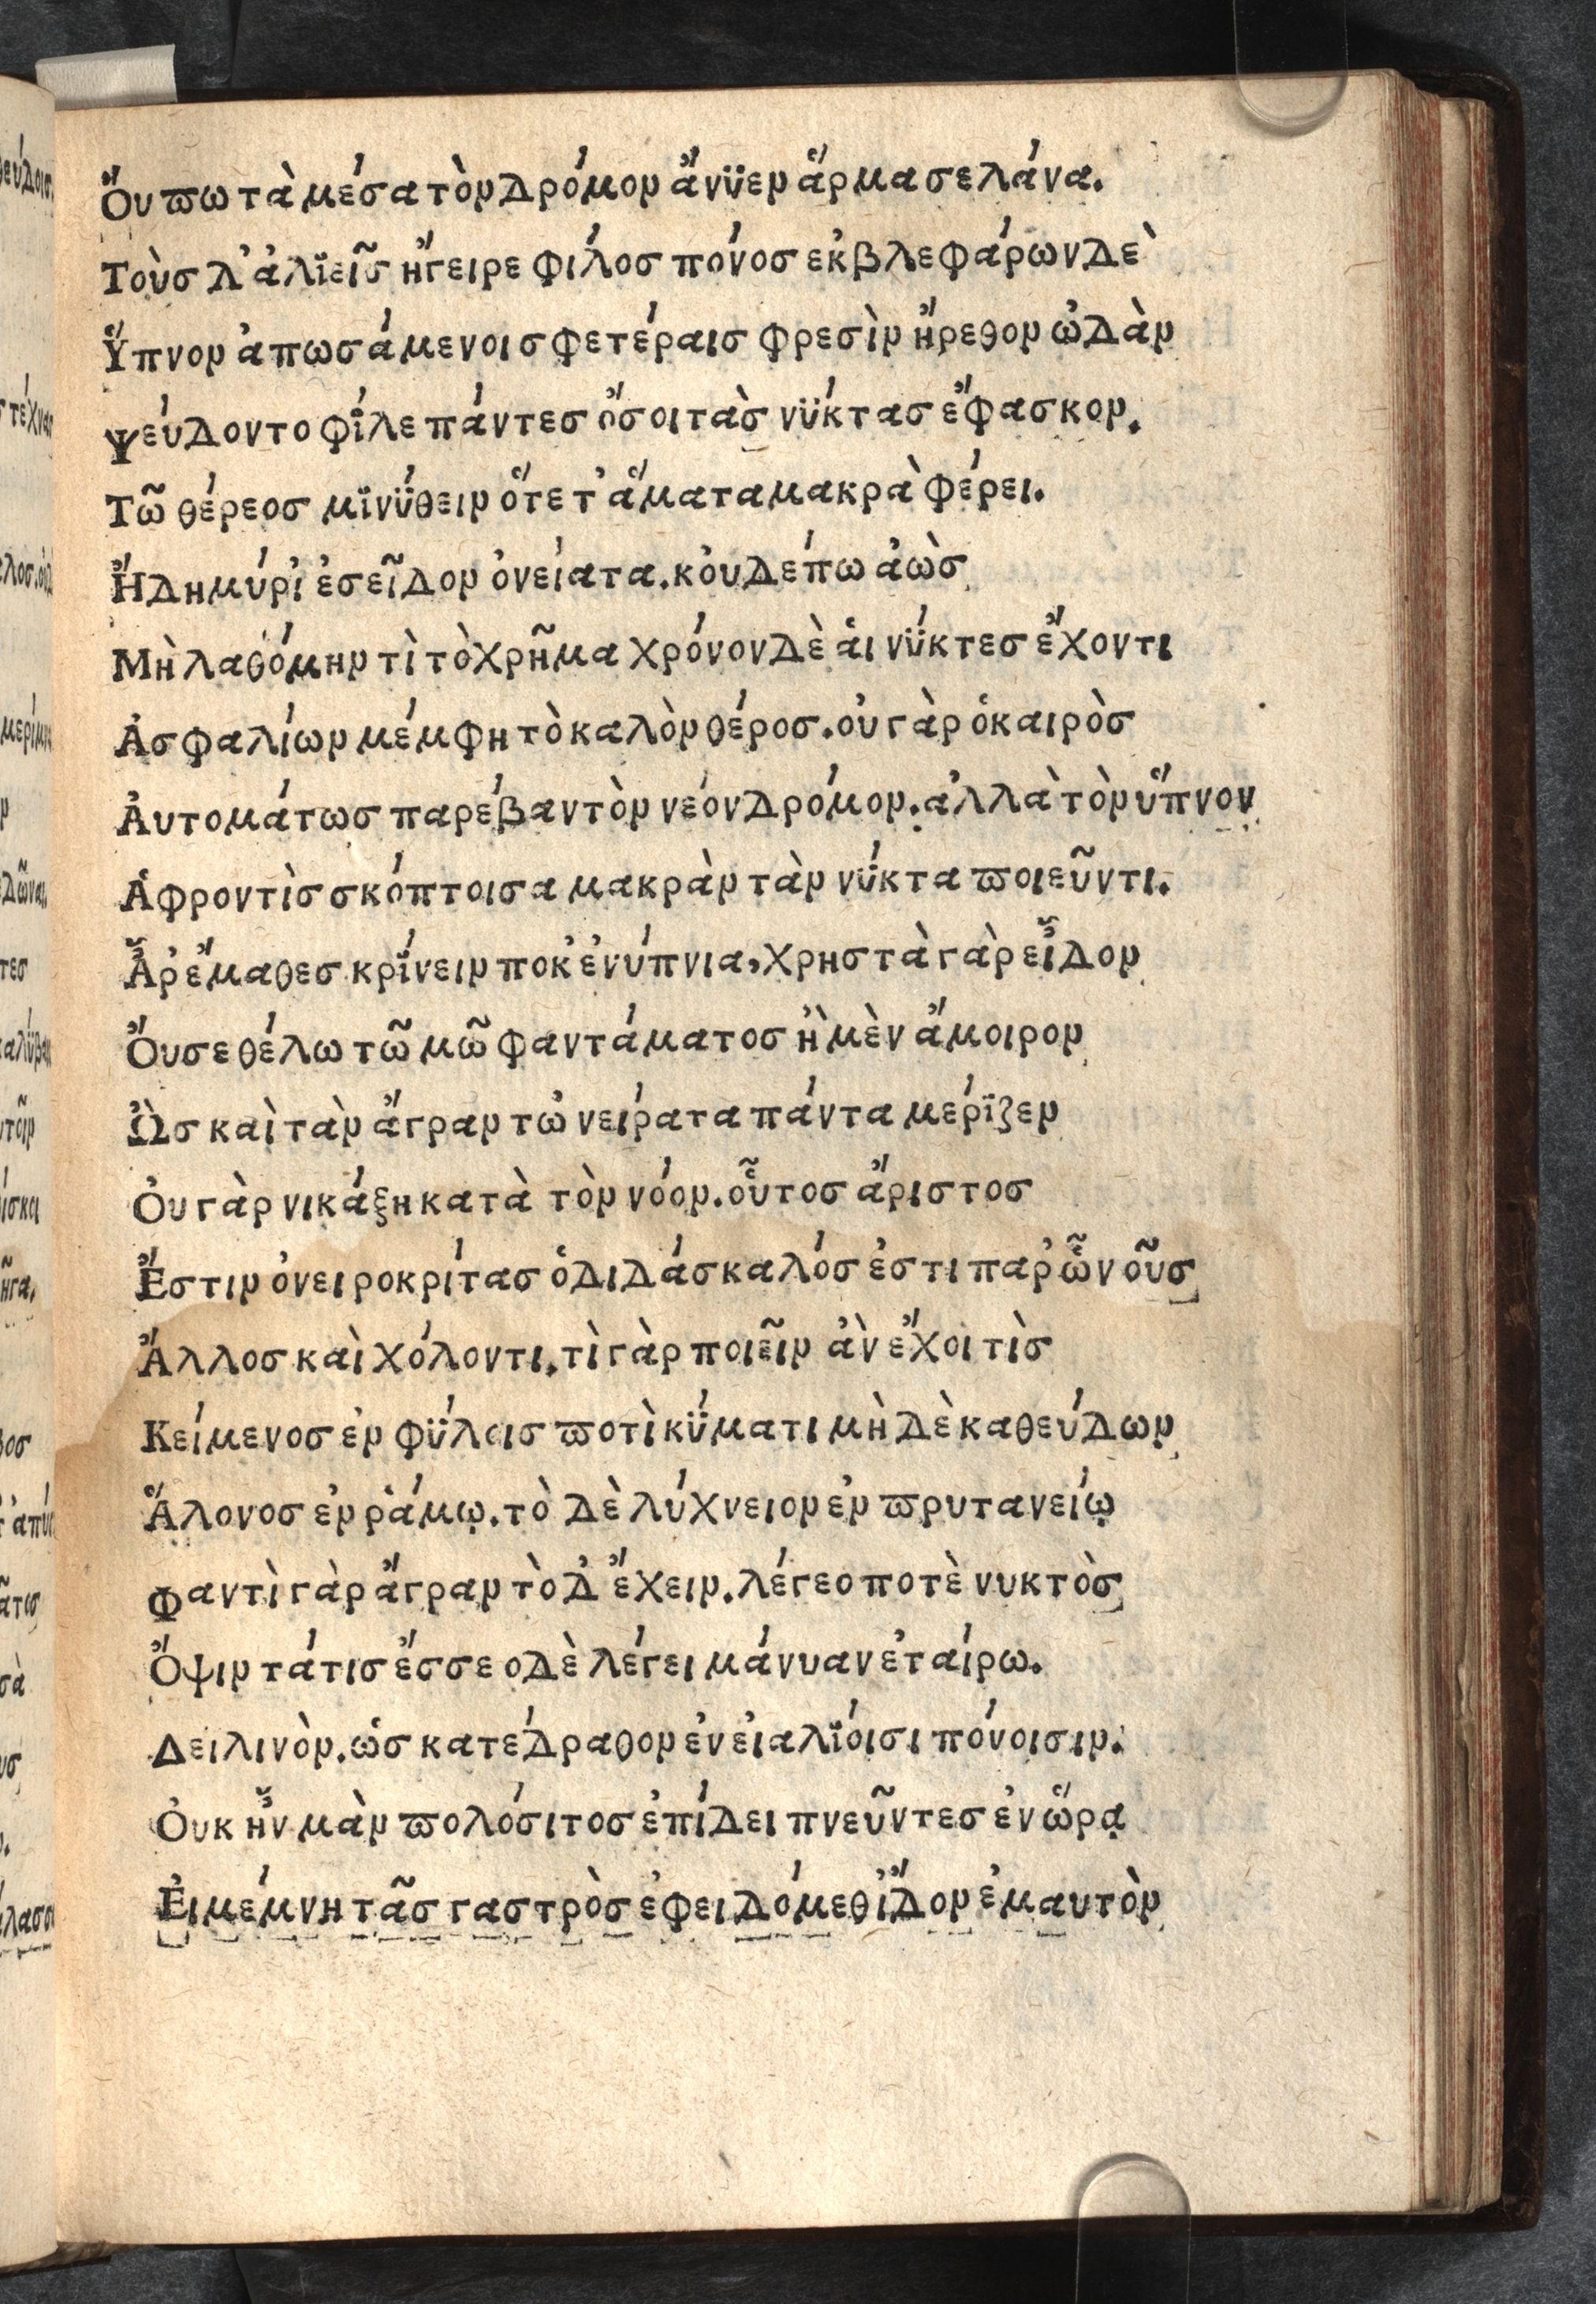 Ὄυπω τὰ μέσατὸν δρόμον ἄνϋεν ἅρμα σελάνα.
Τοὺσ Δ'ἁλϊεῖσ ἤγειρε φίλοσ πόνοσ ἐκβλεφάρων δὲ
Ὕπνον ἀπωσάμενοι σφετέραισ φρεσὶν ἤρεθον ὠδὰν
Ψεύδοντο φίλε πάντεσ ὅσοι τὰσ νύκτασ ἔφασκον.
Τῶ θέρεοσ μϊνΰθειν ὅτε τ' ἄματα μακρὰ φέρει.
Ἤδη μύρι' ἐσεῖδον ὀνείατα. κὀυδέπω ἀὼσ
Μὴ λαθόμην τὶ τὸ χρῆμα χρόνον δὲ ἁι νΰκτεσ ἔχοντι
Ἀσφαλίων μέμφη τὸ καλὸν θέροσ. ὀυ γὰρ ὁ καιρὸσ
Ἀυτομάτωσ παρέβαν τὸν νέον δρόμον. ἀλλὰ τὸν ὕπνον
Ἁ φροντὶσ σκόπτοισα μακρὰν τὰν νύκτα ποιεῦντι.
Ἆρ' ἔμαθεσ κρΐνειν ποκ' ἐνύπνια, χρηστὰ γὰρ εἶδον
Ὄυ σε θέλω τῶ μῶ φαντάματοσ ἢ μὲν ἄμοιρον
Ὡσ καὶ τὰν ἄγραν τὠνείρατα πάντα μερΐζεν
Ὀυ γὰρ νικάξη κατὰ τὸν νόον. οὗτοσ ἄριστοσ
Ἔστιν ὀνειροκρίτασ ὁ διδάσκαλόσ ἐστι παρ' ὧ νοῦσ
Ἄλλοσ καὶ χόλοντι. τὶ γὰρ ποιεῖν ἀν ἔχοι τὶσ
Κείμενοσ ἐν φΰλοισ ποτὶ κΰματι μὴ δὲ καθεύδων
Ἄλονοσ ἐν ῥάμῳ. τὸ δὲ λύχνειον ἐν πρυτανείῳ
Φαντὶ γὰρ ἄγραν τὸ δ' ἔχειν. λέγεο ποτὲ νυκτὸσ
Ὄψιν τά τισ ἔσσεο δὲ λέγει μάνυαν ἑταίρω.
Δειλινὸν. ὡσ κατέδραθον ἐν ἐιαλΐοισι πόνοισιν.
Ὀυκ ἦν μὰν πολόσιτοσ ἐπίδει πνεῦντεσ ἐν ὥρᾳ
Ἐι μέμνη τᾶσ γαστρὸσ ἐφειδόμεθ' ἴδον ἐμαυτὸν